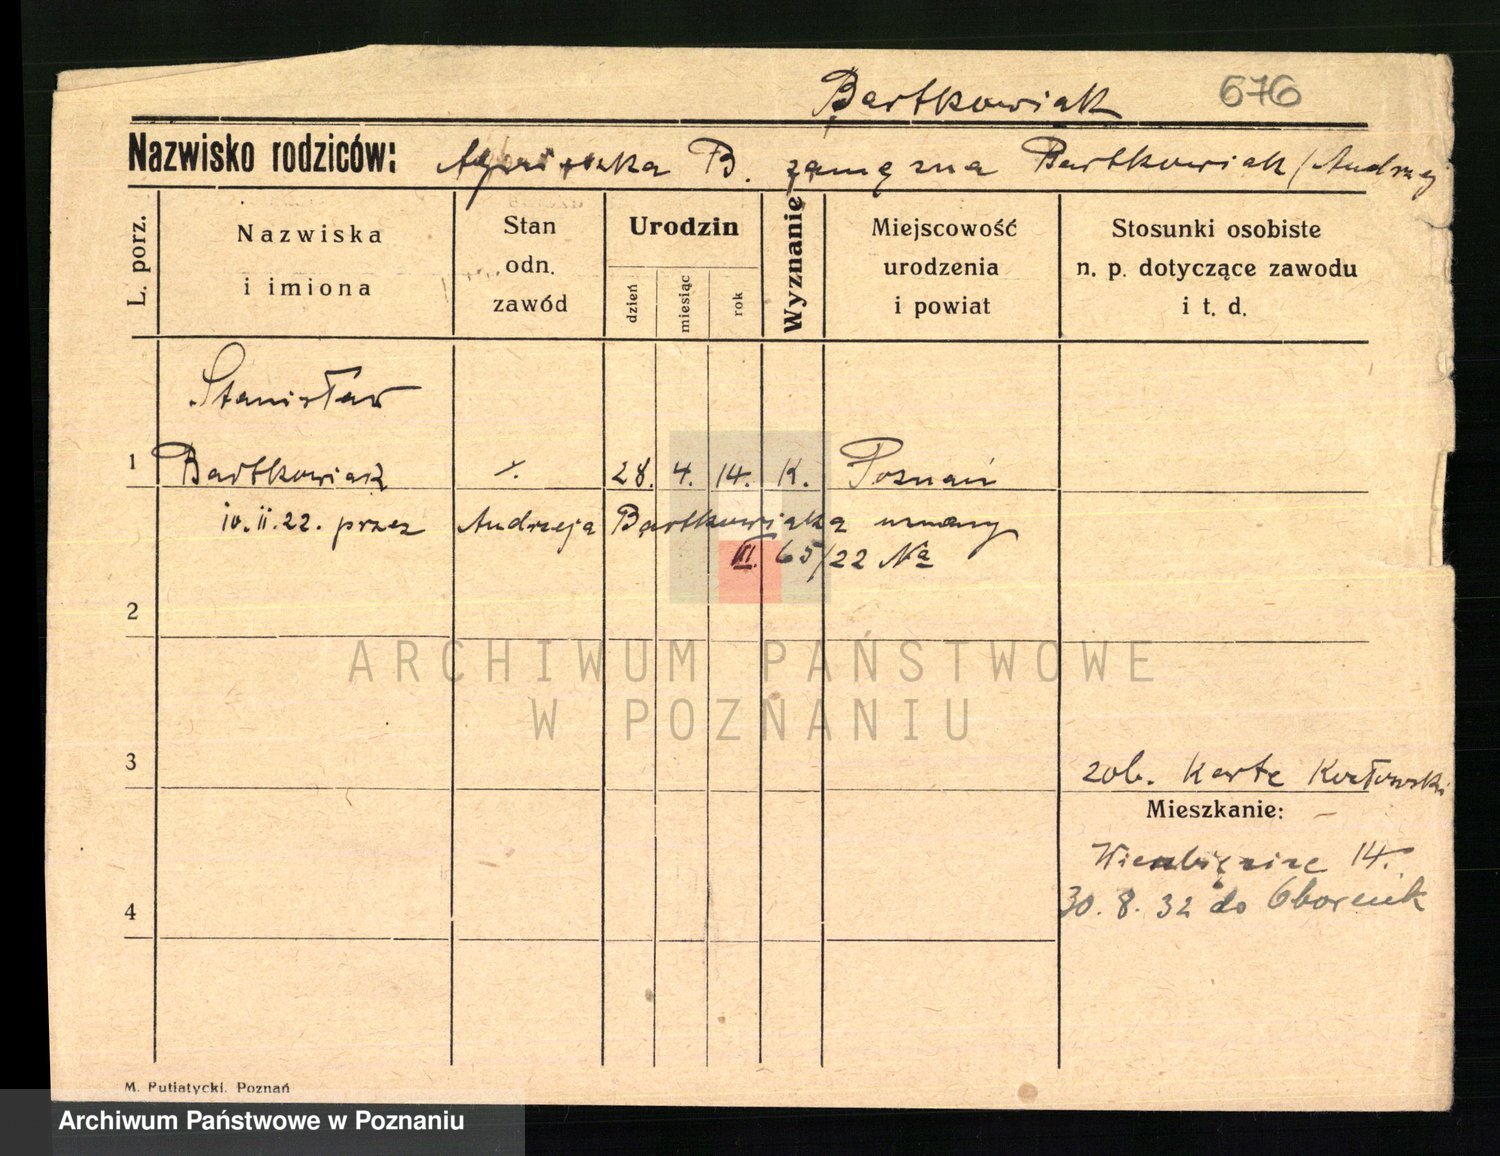 Bartkowiak 676
Nazwisko rodziców: Agnieszka B. zamężna Bartkowiak / Andrzej
L. porz.
Nazwiska
i imiona
Stan
odn.
zawód
Urodzin
dzień
miesiąc
rok
Wyznanie
Miejscowość
urodzenia
i powiat
Stosunki osobiste
n. p. dotyczące zawodu
i t. d.
Stanisław
1 Bartkowiak 28. 4. 14. K. Poznań
10. II. 22. przez Andrzeja Bartkowiaka uznany
III. 65/22 Na
2
ARCHIWUM PAŃSTWOWE
W POZNANIU
3
zob. Kartę Kozłowski
Mieszkanie:
14.
4
30. 8. 32 do Obornik
M. Putiatycki, Poznań
Archiwum Państwowe w Poznaniu